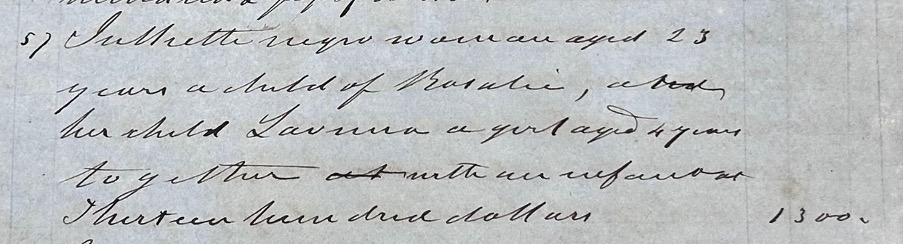 57 Juliette negro woman aged 23
years a child of Rosalie, and
her child Lavinia a girl aged 4 years
together at with an infant at
Thirteen hundred dollars 1300.